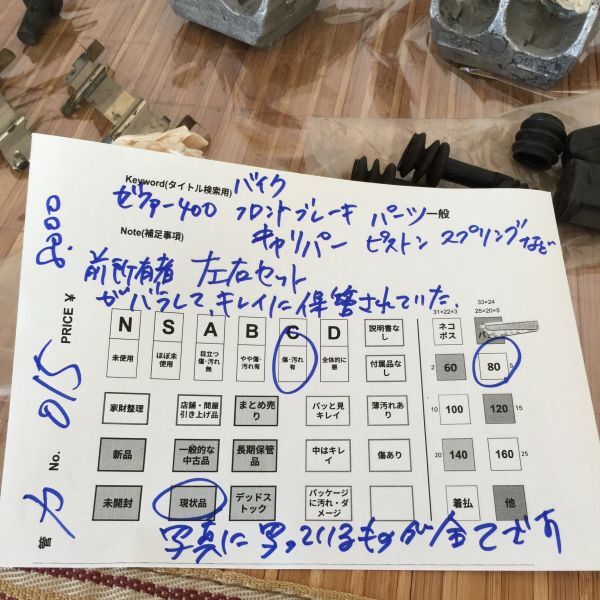 Keyword(タイトル検索用) バイク
ゼファー400 フロントブレーキ パーツ一般
Note(補足事項) キャリパー ピストン スプリングなど
前所有者 左右セット
がバラして、キレイに保管されていた。
PRICE ¥ 8,000
管 No. カ 015
N S A B C D 説明書なし
未使用 ほぼ未使用 目立つ傷・汚れ無 やや傷・汚れ有 傷・汚れ有 全体的に悪 付属品なし
家財整理 店舗・問屋引き上げ品 まとめ売り パッと見キレイ 薄汚れあり
新品 一般的な中古品 長期保管品 中はキレイ 傷あり
未開封 現状品 デッドストック パッケージに汚れ・ダメージ
31×22×3 33×24
25×20×5
ネコポス
2 60 80 5
10 100 120 15
20 140 160 25
着払 他
写真に写っているものが全てです